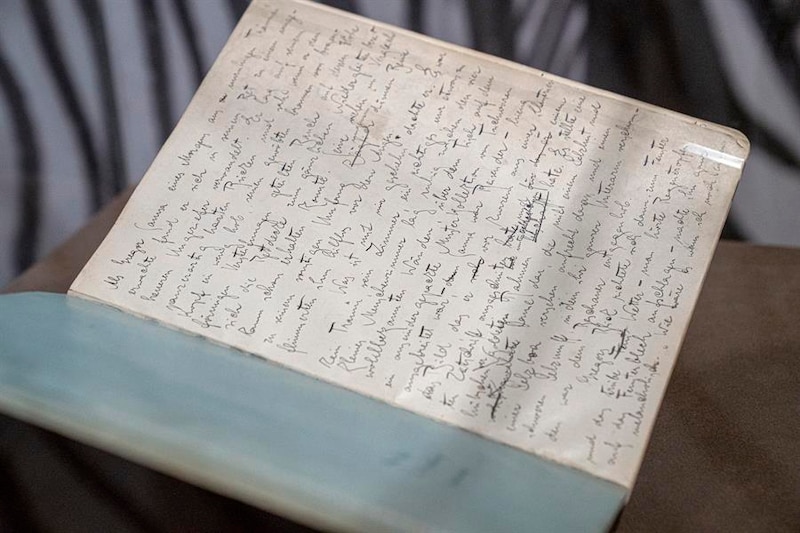 Als Gregor Samsa eines Morgens aus unruhigen Träumen
erwachte, fand er sich in seinem Bett zu einem
ungeheueren Ungeziefer verwandelt. Er lag auf seinem
panzerartig harten Rücken und sah, wenn er den
Kopf ein wenig hob, seinen gewölbten braunen von
förmigen Versteifungen geteilten Bauch, auf dessen Höhe
sich die Bettdecke zum gänzlichen Niedergleiten bereit
kaum erhalten konnte. Seine vielen im Vergleich
zu seinem sonstigen Umfang dünnen Beine
flimmerten ihm hilflos vor den Augen.
Was ist mit mir geschehen? dachte er. Es war
kein Traum, sein Zimmer, ein
kleines Menschenzimmer lag ruhig zwischen den vier
wohlbekannten Wänden, über dem Tisch, auf dem
eine auseinandergepackte Musterkollektion von Tuchwaren
ausgebreitet war - Samsa war Reisender - hieng
das Bild, das er vor kurzem aus einer illustrierten
Zeitschrift ausgeschnitten
hübschen vergoldeten Rahmen hatte. Es stellte eine
Dame dar, die mit einem Pelzhut und
einer Pelzboa versehen aufrecht dasaß und einen
schweren Pelzmuff, in dem ihr ganzer Unterarm
den, vor dem Beschauer entgegenhob.
Gregors Blick richtete sich dann zum Fenster
und das trübe Wetter - man hörte Regentropfen
auf das Fensterblech aufschlagen - machte ihn ganz
melancholisch. Wie wäre es wenn ich noch ein wenig